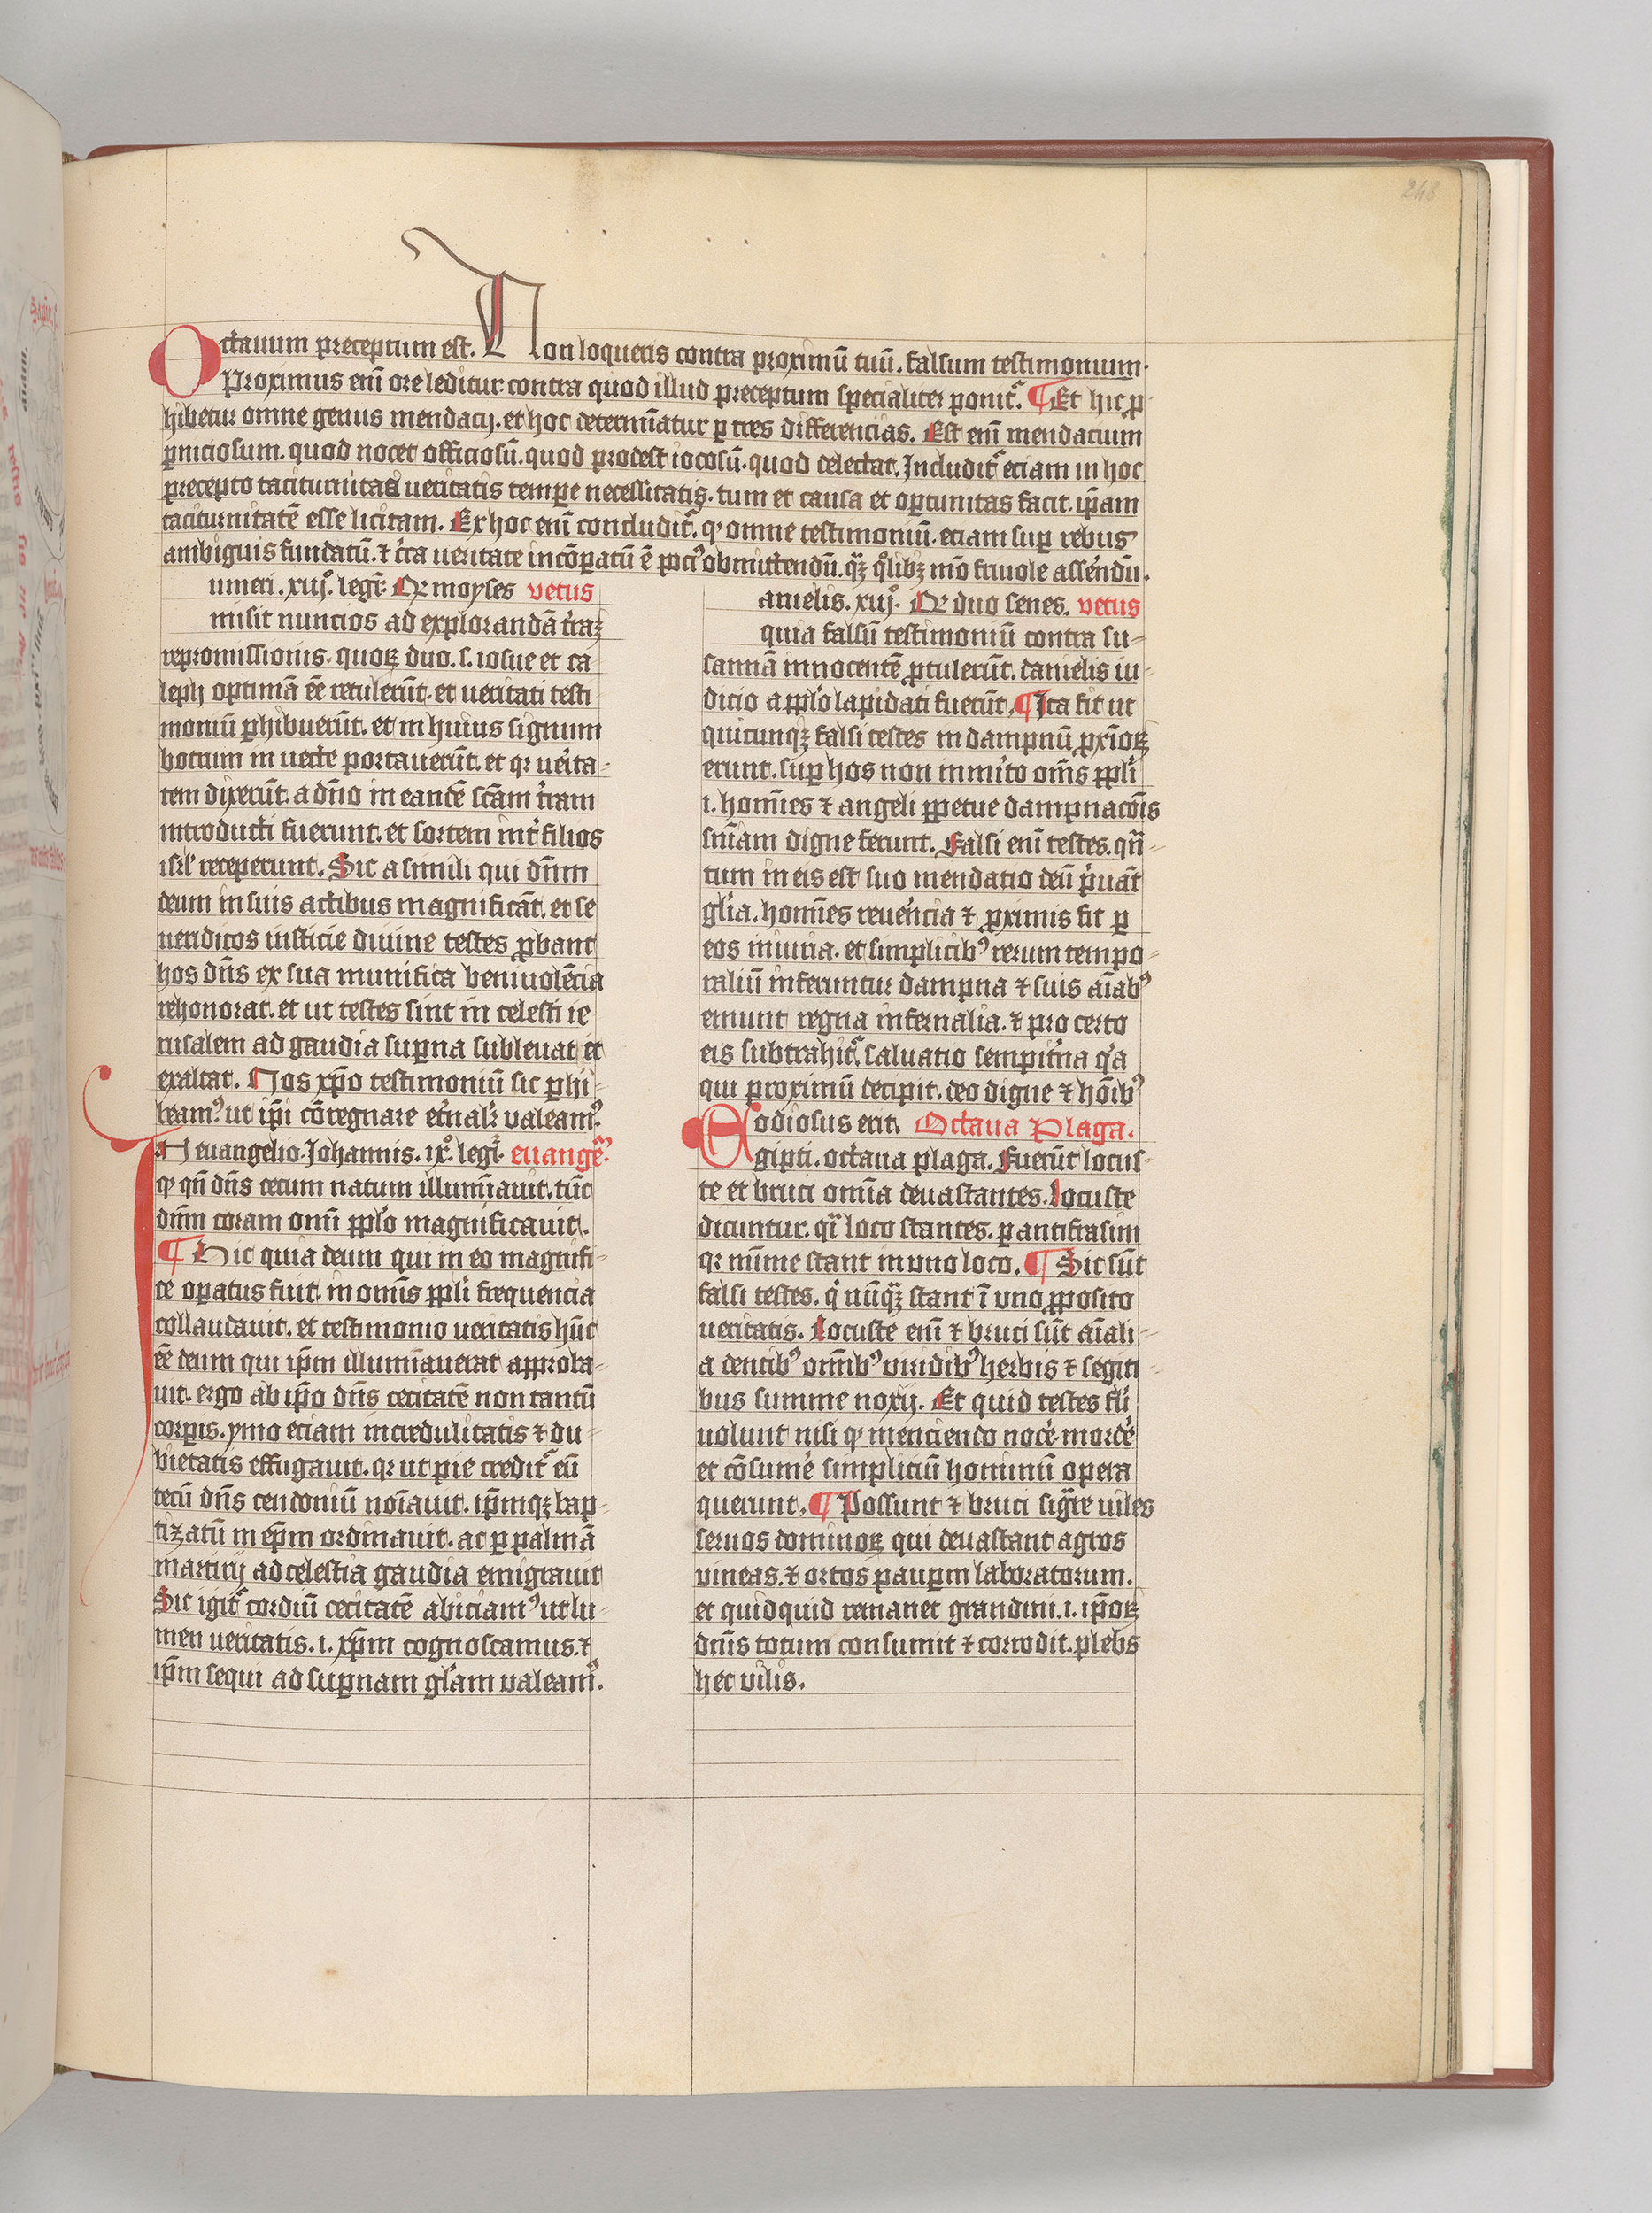 248
Octauum preceptum est. Non loqueris contra proximū tuū. falsum testimonium.
Proximus enī ore leditur contra quod illud preceptum specialiter ponit᷑. ¶ Et hic ꝓ-
hibetur omne genus mendacij. et hoc determīatur ꝑ tres differencias. Est enī mendacium
ꝑniciosum. quod nocet officiosū. quod prodest iocosū. quod delectat. Includit᷑ eciam in hoc
precepto taciturnitas ueritatis tempe necessitatis. tum et causa et oꝑtunitas facit. ip̄am
taciturnitatē esse licitam. Ex hoc enī concludit᷑. ꝙ omne testimoniū. eciam suꝑ rebus
ambiguis fundatū. ⁊ c̓ca ueritate incōꝑatū ē poci᷒ obmittendū. qͣꝫ qͦlibꝫ mō friuole assēndū.
umeri. xiijͦ. legiť. Qr moyses vetus
misit nuncios ad explorandā t̓raꝫ
repromissionis. quoꝝ duo. s. iosue et ca-
leph optimā eē retulerūt. et ueritati testi
moniū ꝑhibuerūt. et in huius signum
botrum in uecte portauerūt. et qr ueřita-
tem dixerūt. a dn̄o in eandē sc̄am t̓ram
introducti fuerunt. et sortem int̓ filios
isrl̓ receperunt. Sic a simili qui dn̄m
deum in suis actibus magnificāt. et se
ueridicos iusticie diuine testes ꝓbant
hos dn̄s ex sua munifica beniuolēcia
rehonorat. et ut testes sint in celesti ie
rusalem ad gaudia suꝑna subleuat et
exaltat. Nos xp̄o testimoniū sic ꝑhi-
beam᷒ ut ip̄i cōregnare et̓nal̓r valeam᷒.
In euangelio. Johannis. ixͦ. legiť euangē.
ꝙ qn̄ dn̄s cecum natum illumīauit. tūc
dn̄m coram om̄i ppl̓o magnificauit.
¶ Hic quia deum qui in eo magnifi-
ce oꝑatus fuit. in om̄is ppl̓i frequencia
collaudauit. et testimonio ueritatis hūc
eē deum qui ip̄m illumiauerat approba-
uit. ergo ab ip̄o dn̄s cecitatē non tantū
corꝑis. ymo eciam incredulitatis ⁊ du-
bietatis effugauit. qr ut pie credit᷑ eū
cecū dn̄s cendoniū noīauit. ip̄mqꝫ bap-
tizatū in ep̄m ordinauit. ac ꝑ palmā
martirij ad celestia gaudia emigrauit
Sic igit᷑ cordiū cecitatē abiciam᷒ ut lu-
men ueritatis. i. xp̄m cognoscamus. ⁊
ip̄m sequi ad suꝑnam gl̓am valeam᷒.
anielis. xiijͦ. Qr duo senes. vetus
quia falsū testimoniū contra su-
sannā innocentē ꝓtulerūt. danielis iu-
dicio a ppl̓o lapidati fuerūt. ¶ Ita fit ut
quicunqꝫ falsi testes in dampnū ꝓxīoꝝ
erunt. suꝑ hos non inmito om̄s ppl̓i
.i. homīes ⁊ angeli ꝑpetue dampnacōis
sn̄iam digne ferunt. Falsi enī testes. qn̄-
tum in eis est suo mendatio deū p̓uāt
gl̓ia. homīes reuēncia ⁊ ꝓximis fit ꝑ
eos iniuria. et simplicib᷒ rerum tempo-
raliū inferuntur dampna ⁊ suis aīab᷒
emunt regna infernalia. ⁊ pro certo
eis subtrahit᷑. saluatio sempit̓na q̓a
qui proximū decipit. deo digne ⁊ hōib᷒
odiosus erit. Octaua Plaga.
Egipti. octaua plaga. Fuerūt locus-
te et bruci omīa deuastantes. Locuste
dicuntur. qͣi loco stantes. ꝑ antifrasim
qr mīme stant in uno loco. ¶ Sic sūt
falsi testes. q̓ nūqͣꝫ stant ī uno ꝓposito
ueritatis. Locuste enī ⁊ bruci sūt aīali-
a dentib᷒ om̄ib᷒ viridib᷒ herbis ⁊ segiti-
bus summe noxij. Et quid testes fl̓i
uolunt nisi ꝙ menciendo nocē mordē
et cōsumē simpliciū hominū opera
querunt. ¶ Possunt ⁊ bruci sigͣre uiles
seruos dominoꝝ qui deuastant agros
vineas. ⁊ ortos pauꝑum laboratorum.
et quidquid remanet grandini. i. ip̄oꝝ
dn̄is totum consumit ⁊ corrodit. plebs
hec vilis.